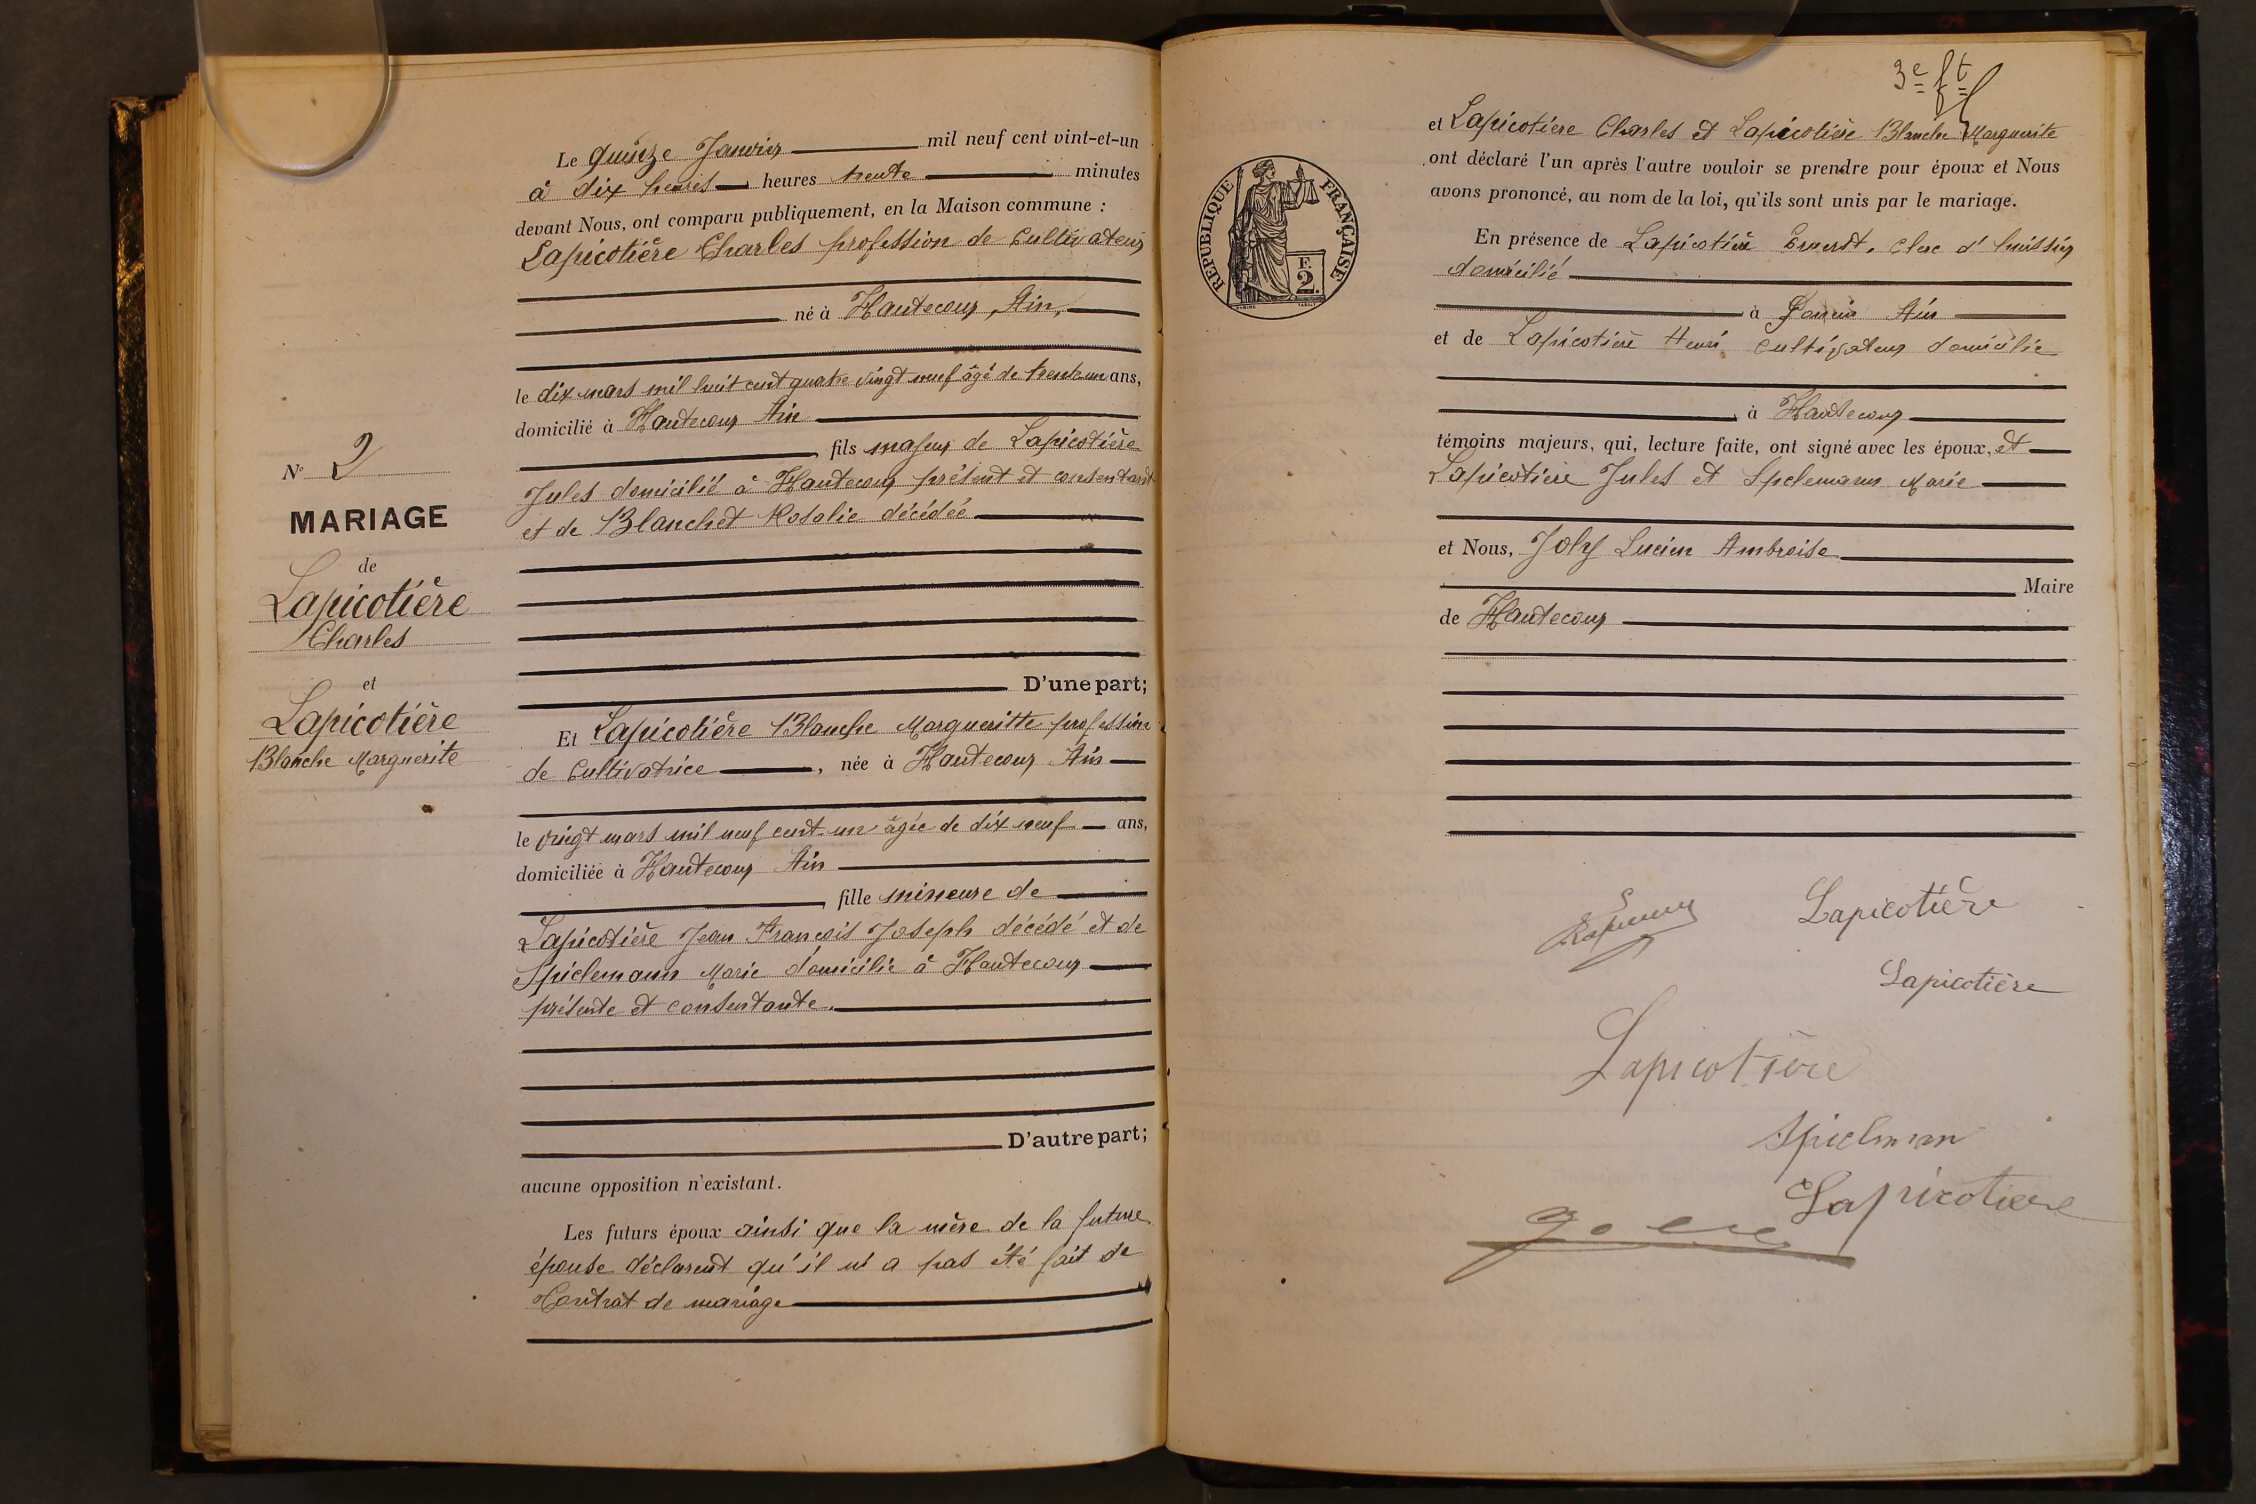 Le quinze Janvier mil neuf cent vint-et-un
à dix heures heures trente minutes
devant Nous, ont comparu publiquement, en la Maison commune :
Lapicotière Charles profession de Cultivateur
né à Hautecour, Ain,
le dix mars mil huit cent quatre vingt neuf âgé de trente un ans,
domicilié à Hautecour Ain
fils majeur de Lapicotière
Jules domicilié à Hautecour présent et consentant
et de Blanchet Rosalie décédée
D'une part;
N° 2
MARIAGE
de
Lapicotière
Charles
et
Lapicotière
Blanche Marguerite
Et Lapicotière Blanche Margueritte profession
de Cultivatrice, née à Hautecour Ain
le vingt mars mil neuf cent un âgée de dix neuf ans,
domiciliée à Hautecour Ain
fille mineure de
Lapicotière Jean François Joseph décédé et de
Spielemann Marie domicilié à Hautecour
présente et consentante.
D'autre part;
aucune opposition n'existant.
Les futurs époux ainsi que la mère de la future
épouse déclarent qu'il n'a pas été fait de
Contrat de mariage
3e ft
et Lapicotière Charles et Lapicotière Blanche Marguerite
ont déclaré l'un après l'autre vouloir se prendre pour époux et Nous
avons prononcé, au nom de la loi, qu'ils sont unis par le mariage.
REPUBLIQUE FRANÇAISE
F.
2.
En présence de Lapicotière Ernest, clerc d'huissier
domicilié
à Ain
et de Lapicotière Henri cultivateur domicilié
à Hautecour
témoins majeurs, qui, lecture faite, ont signé avec les époux, et
Lapicotière Jules et Spelemann Marie
et Nous, Joly Lucien Ambroise
Maire
de Hautecour
Lapicotière
Lapicotière
Lapicotière
Spielman
Lapicotiere